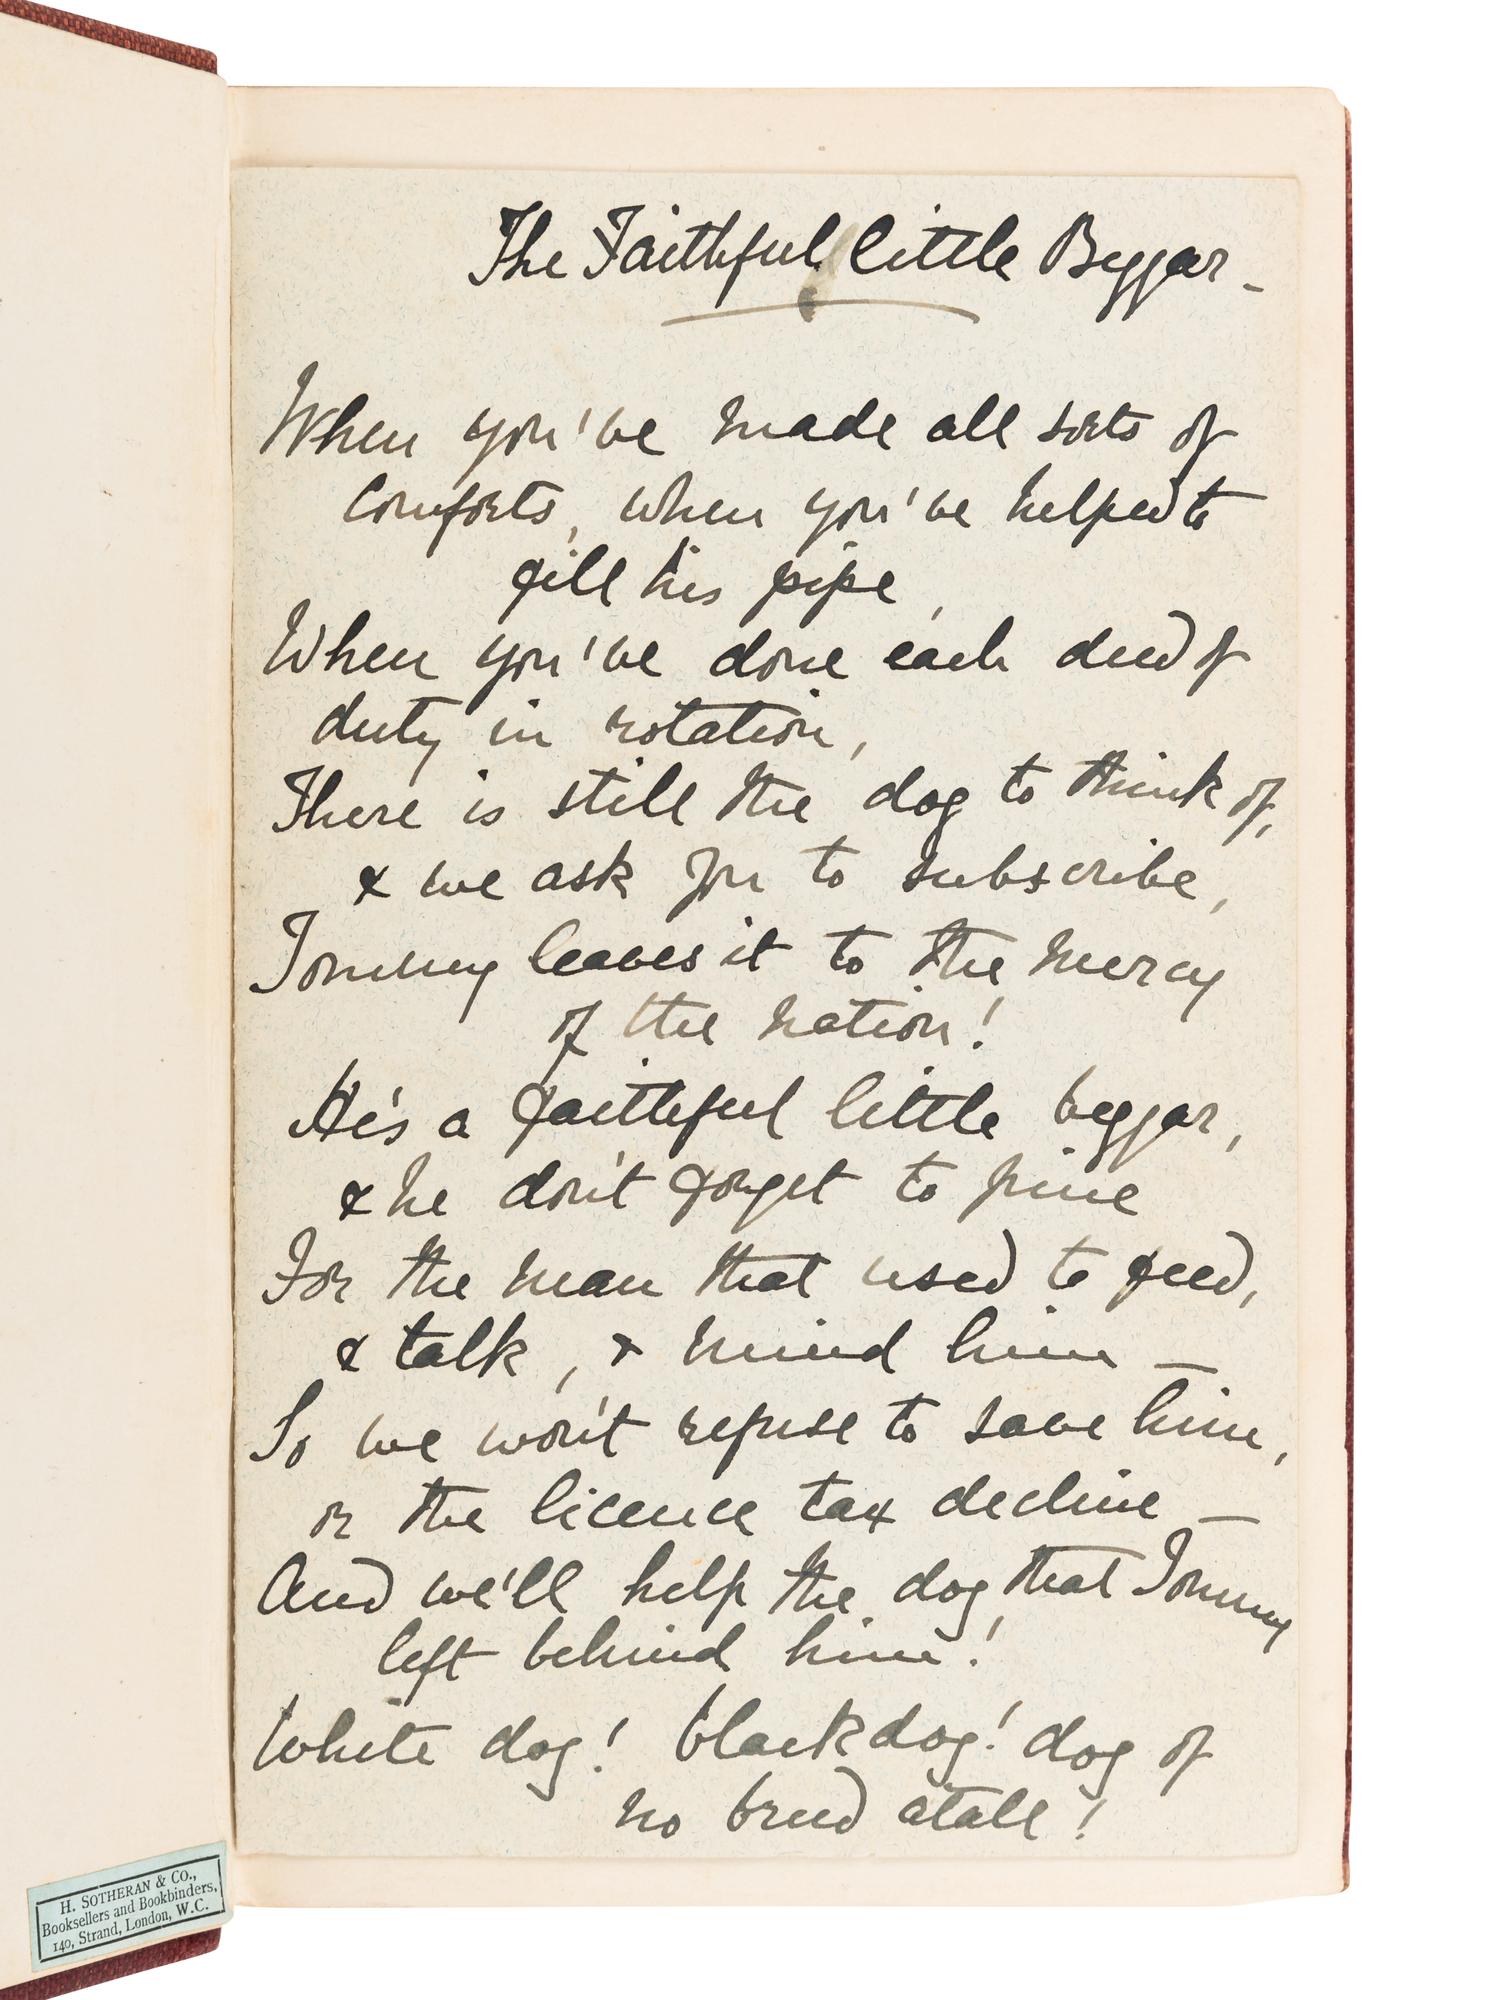 The Faithful little Beggar -
When you've made all sorts of
comforts, when you've helped to
fill his pipe,
When you've done each deed of
duty in rotation,
There is still the dog to think of,
& we ask you to subscribe,
Tommy leaves it to the mercy
of the nation!
He's a faithful little beggar,
& he don't forget to pine
For the man that used to feed,
& talk, & mind him —
So we won't refuse to save him,
or the licence tax decline —
And we'll help the dog that Tommy
left behind him!
White dog! black dog! dog of
no breed at all!
H. SOTHERAN & CO.,
Booksellers and Bookbinders,
140, Strand, London, W.C.